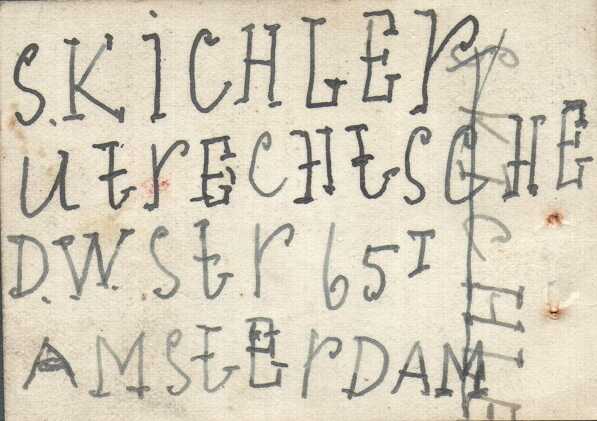 S. KiCHLEr
UtrECHtSCHE
D.W.Str 65 I
AMStErDAM
SKICHLE